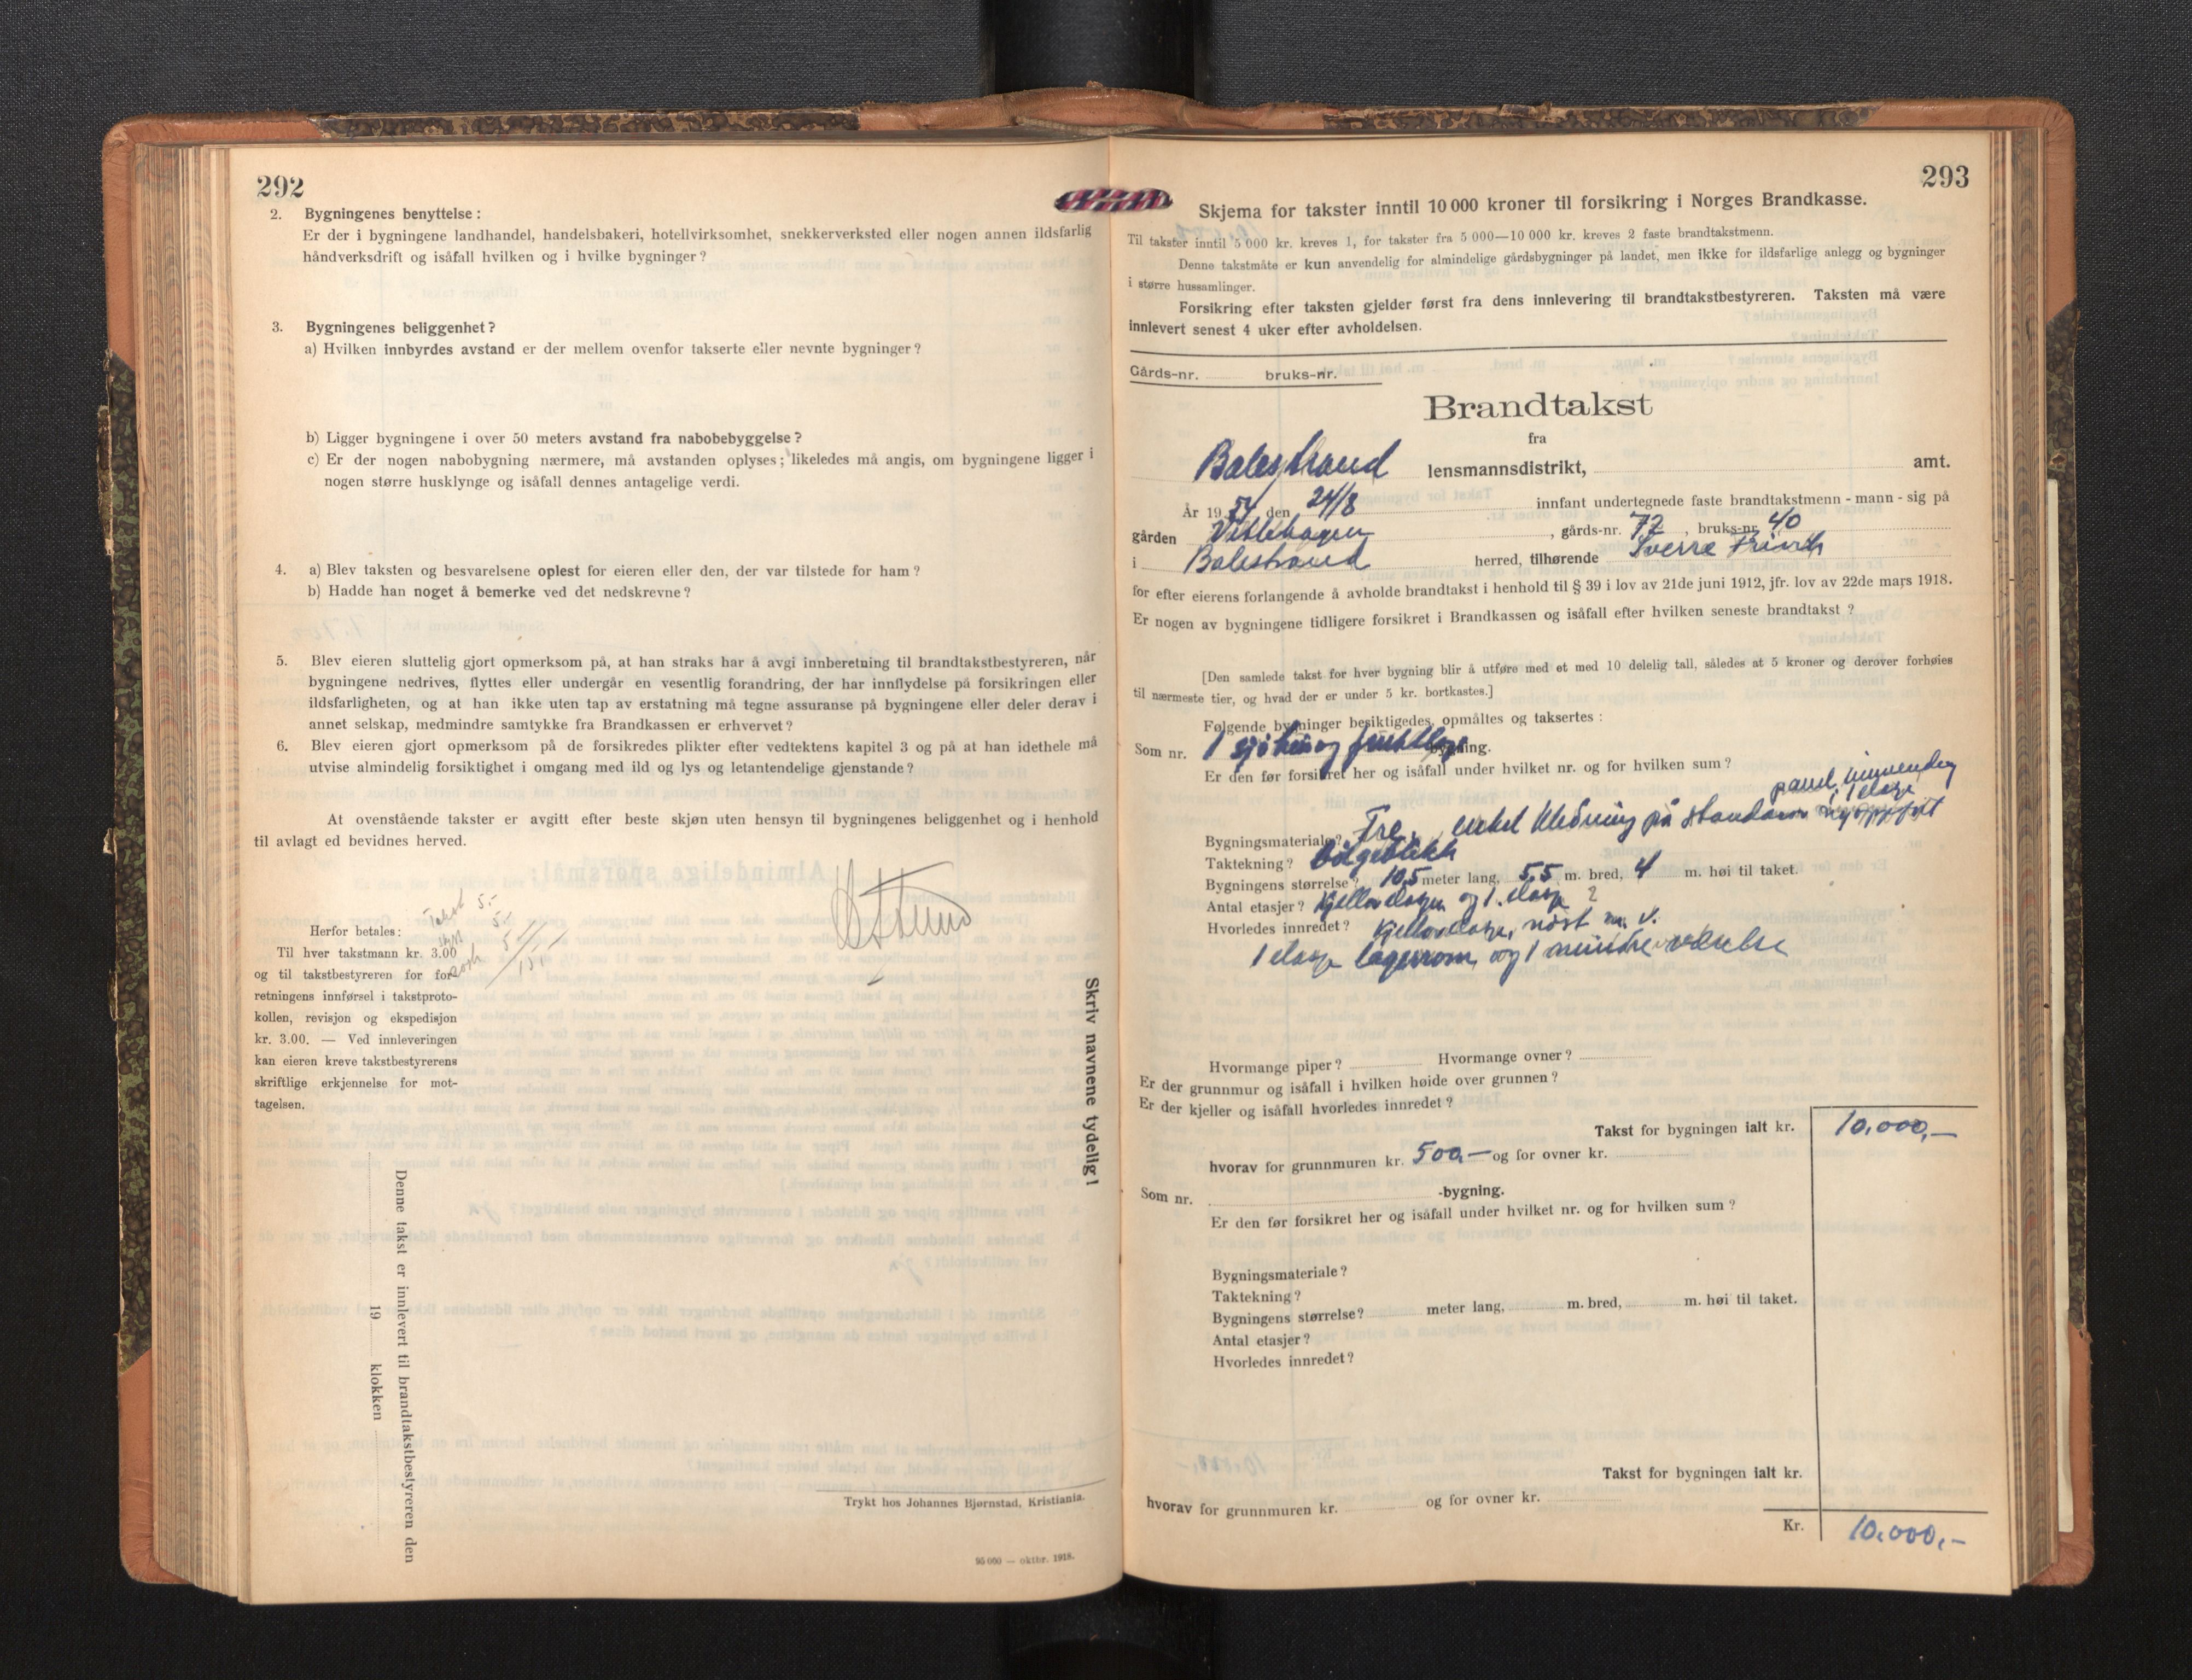 292
2. Bygningenes benyttelse :
Er der i bygningene landhandel, handelsbakeri, hotellvirksomhet, snekkerverksted eller nogen annen ildsfarlig
håndverksdrift og isåfall hvilken og i hvilke bygninger ?
3. Bygningenes beliggenhet ?
a) Hvilken innbyrdes avstand er der mellem ovenfor takserte eller nevnte bygninger ?
b) Ligger bygningene i over 50 meters avstand fra nabobebyggelse ?
c) Er der nogen nabobygning nærmere, må avstanden oplyses ; likeledes må angis, om bygningene ligger i
nogen større husklynge og isåfall dennes antagelige verdi.
4. a) Blev taksten og besvarelsene oplest for eieren eller den, der var tilstede for ham ?
b) Hadde han noget å bemerke ved det nedskrevne ?
5. Blev eieren sluttelig gjort opmerksom på, at han straks har å avgi innberetning til brandtakstbestyreren, når
bygningene nedrives, flyttes eller undergår en vesentlig forandring, der har innflydelse på forsikringen eller
ildsfarligheten, og at han ikke uten tap av erstatning må tegne assuranse på bygningene eller deler derav i
annet selskap, medmindre samtykke fra Brandkassen er erhvervet ?
6. Blev eieren gjort opmerksom på de forsikredes plikter efter vedtektens kapitel 3 og på at han idethele må
utvise almindelig forsiktighet i omgang med ild og lys og letantendelige gjenstande ?
At ovenstående takster er avgitt efter beste skjøn uten hensyn til bygningenes beliggenhet og i henhold
til avlagt ed bevidnes herved.
Takst 5.-
5.-
5
15,-
Herfor betales :
Til hver takstmann kr. 3.00
og til takstbestyreren for for-
retningens innførsel i takstproto-
kollen, revisjon og ekspedisjon
kr. 3.00. — Ved innleveringen
kan eieren kreve takstbestyrerens
skriftlige erkjennelse for mot-
tagelsen.
Skriv navnene tydelig !
Denne takst er innlevert til brandtakstbestyreren den
19 klokken
Trykt hos Johannes Bjørnstad, Kristiania.
95 000 — oktbr. 1918.
293
Skjema for takster inntil 10 000 kroner til forsikring i Norges Brandkasse.
Til takster inntil 5 000 kr. kreves 1, for takster fra 5 000—10 000 kr. kreves 2 faste brandtakstmenn.
Denne takstmåte er kun anvendelig for almindelige gårdsbygninger på landet, men ikke for ildsfarlige anlegg og bygninger
i større hussamlinger.
Forsikring efter taksten gjelder først fra dens innlevering til brandtakstbestyreren. Taksten må være
innlevert senest 4 uker efter avholdelsen.
Gårds-nr. bruks-nr.
Brandtakst
fra
Balestrand lensmannsdistrikt, amt.
År 1954 den 24/8 innfant undertegnede faste brandtakstmenn - mann - sig på
gården Vetlehagen , gårds-nr. 72 , bruks-nr. 40
i Balestrand herred, tilhørende Sverre
for efter eierens forlangende å avholde brandtakst i henhold til § 39 i lov av 21de juni 1912, jfr. lov av 22de mars 1918.
Er nogen av bygningene tidligere forsikret i Brandkassen og isåfall efter hvilken seneste brandtakst ?
[Den samlede takst for hver bygning blir å utføre med et med 10 delelig tall, således at 5 kroner og derover forhøies
til nærmeste tier, og hvad der er under 5 kr. bortkastes.]
Følgende bygninger besiktigedes, opmåltes og taksertes :
Som nr. 1 sjøhus og bygning.
Er den før forsikret her og isåfall under hvilket nr. og for hvilken sum ?
panel innvendig
i 1 etasje
Bygningsmateriale? Tre, enkel kledning på
Taktekning ? Bølgeblikk
Bygningens størrelse ? 10,5 meter lang, 5,5 m. bred, 4 m. høi til taket.
Antal etasjer ? Kjelleretasje og 1. etasje 2
Hvorledes innredet ? Kjelleretasje, nøst m. v.
1 etasje lagerrom og 1 mindre værelse
Hvormange piper ? Hvormange ovner ?
Er der grunnmur og isåfall i hvilken høide over grunnen ?
Er der kjeller og isåfall hvorledes innredet ?
Takst for bygningen ialt kr. 10.000,-
hvorav for grunnmuren kr. 500,- og for ovner kr.
Som nr. -bygning.
Er den før forsikret her og isåfall under hvilket nr. og for hvilken sum ?
Bygningsmateriale ?
Taktekning ?
Bygningens størrelse? meter lang, m. bred, m. høi til taket.
Antal etasjer ?
Hvorledes innredet ?
Takst for bygningen ialt kr.
hvorav for grunnmuren kr. og for ovner kr.
Kr. 10.000,-